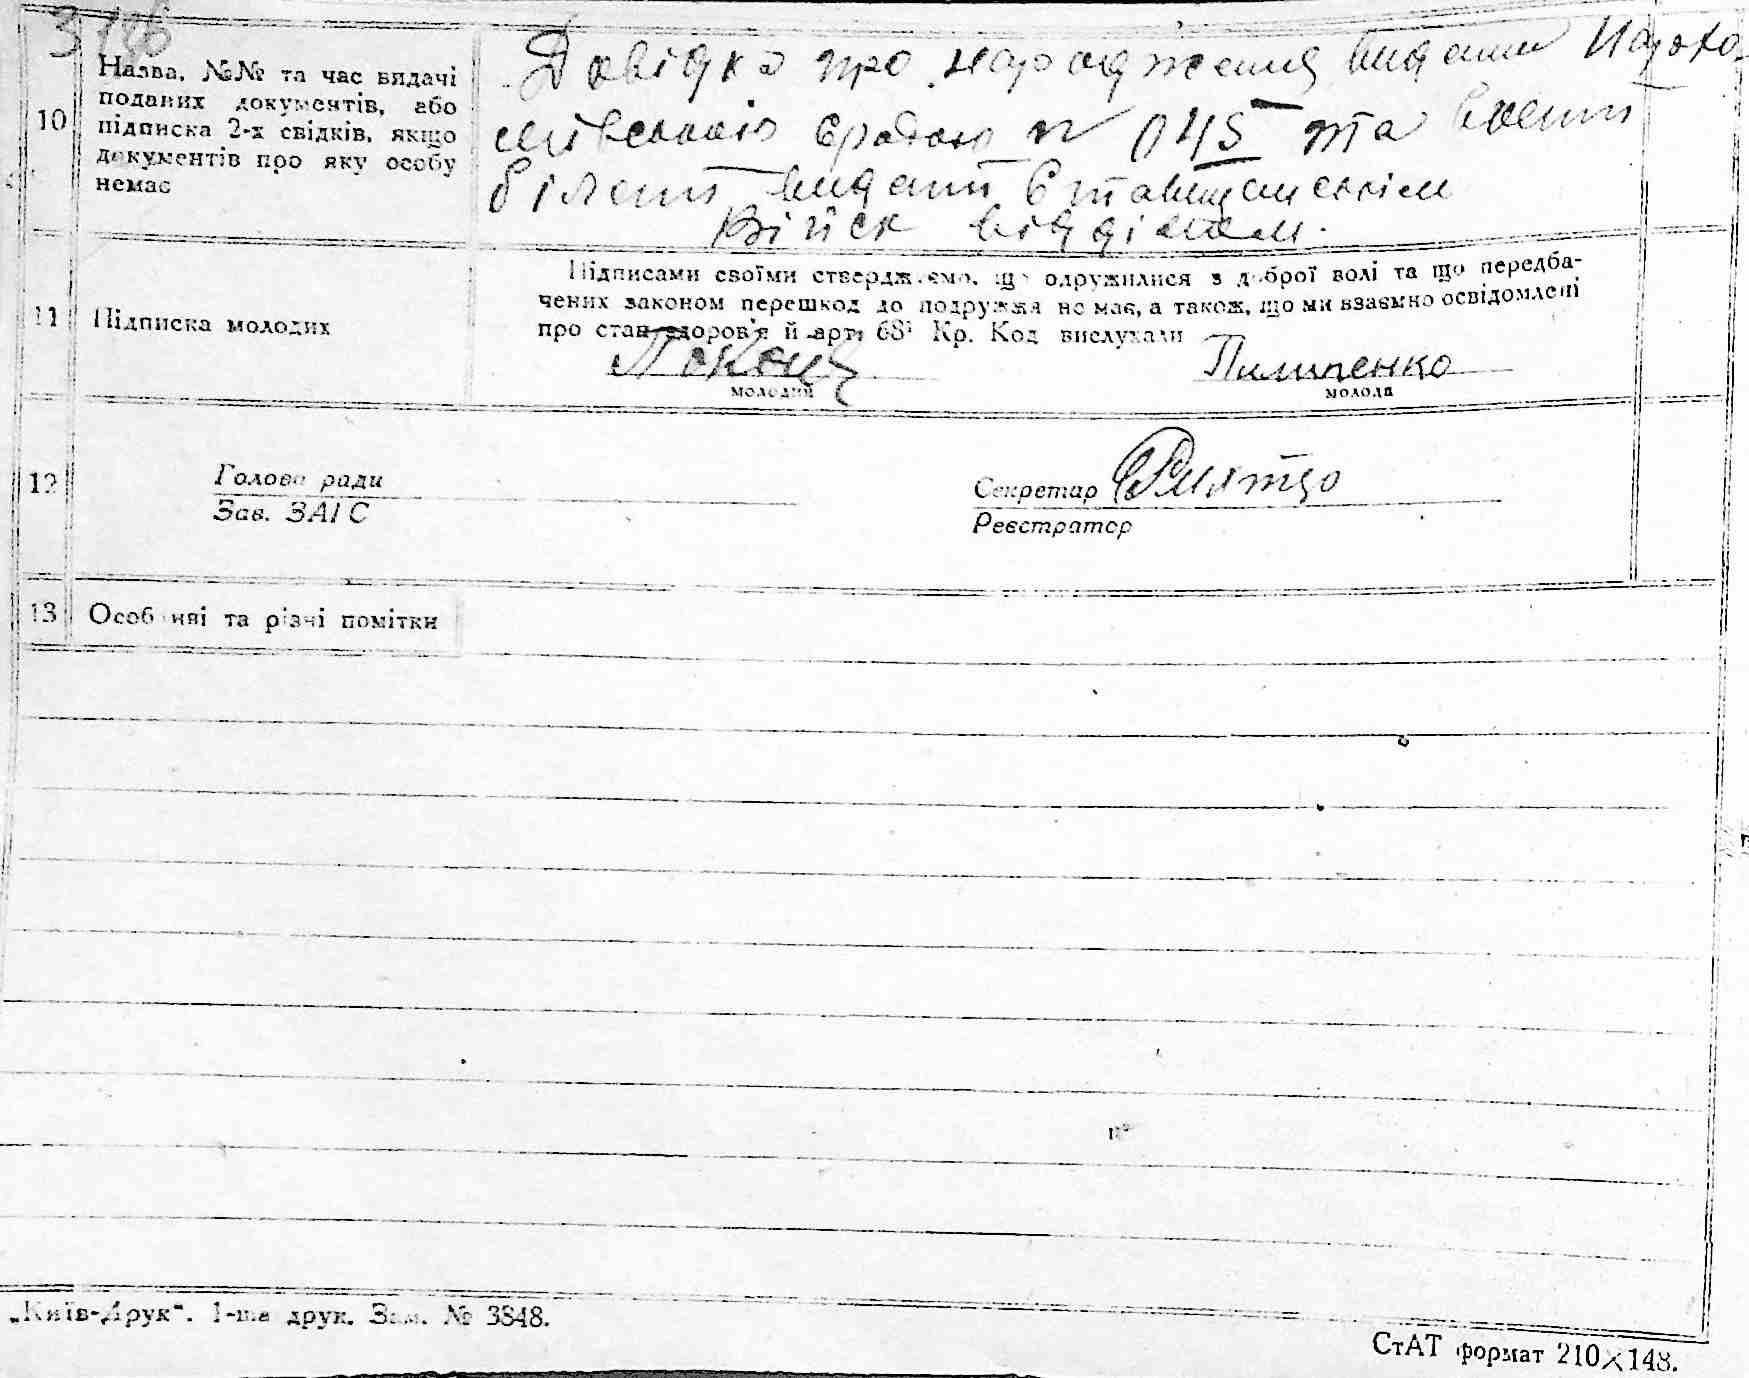 10
Назва, №№ та час видачі
поданих документів, або
підписка 2-х свідків, якщо
документів про яку особу
немає
Довідка про народження видани
сільською радою № 045 та воєнт
білєт видати
Війск відділом.
11
Підписка молодих
Підписами своїми стверджуємо, що одружилися з доброї волі та що передба-
чених законом перешкод до подружжя не має, а також, що ми взаємно освідомлені
про стан здоров'я й арт. 68¹ Кр. Код вислухали
Пилипенко
молодий
молода
12
Голова ради
Зав. ЗАГС
Секретар
Реєстратор
13
Особливі та різні помітки
„Київ-Друк“. 1-ша друк. Зам. № 3848.
СтАТ формат 210×148.